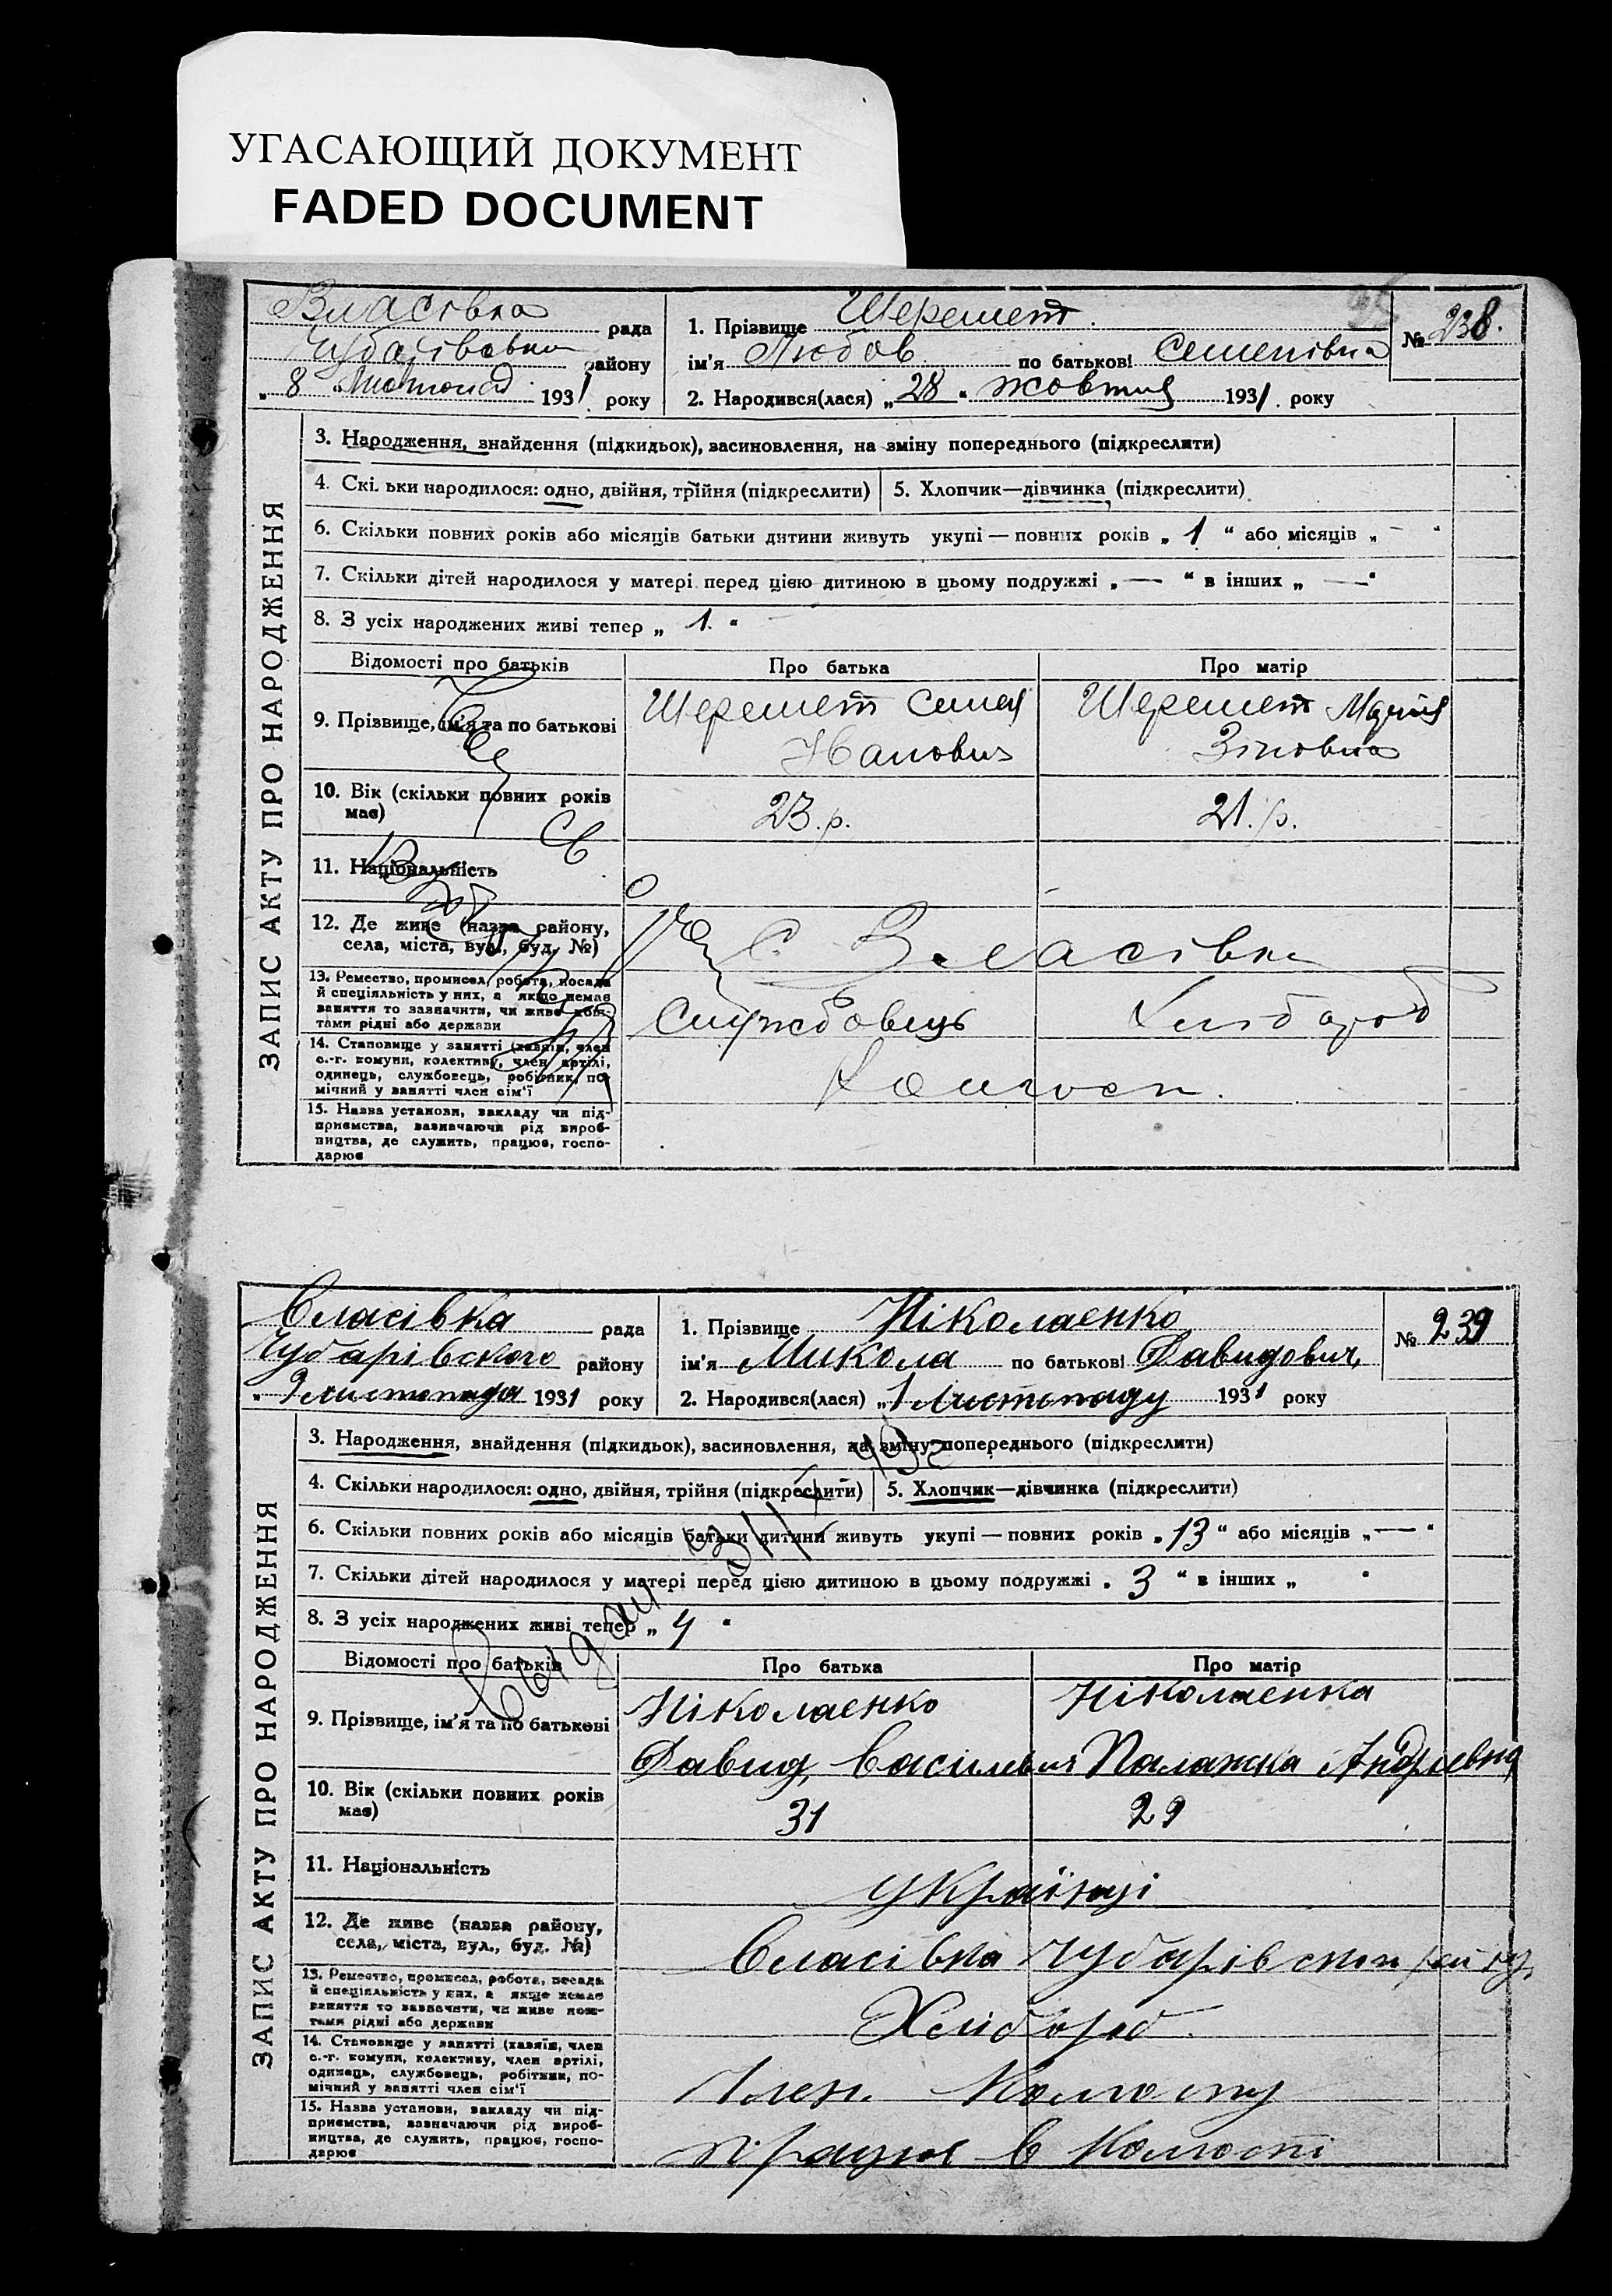 УГАСАЮЩИЙ ДОКУМЕНТ
FADED DOCUMENT
Власівка рада
району
„ 8 Листопад 1931 року
1. Прізвище Шеремет.
ім'я Любов по батькові Семенівна
2. Народився(лася) „28“ жовтня 1931. року
№ 238.
ЗАПИС АКТУ ПРО НАРОДЖЕННЯ
3. Народження, знайдення (підкидьок), засиновлення, на зміну попереднього (підкреслити)
4. Скільки народилося: одно, двійня, трійня (підкреслити) 5. Хлопчик—дівчинка (підкреслити)
6. Скільки повних років або місяців батьки дитини живуть укупі — повних років „ 1 “ або місяців „ — “
7. Скільки дітей народилося у матері перед цією дитиною в цьому подружжі „ — “ в інших „ — “
8. З усіх народжених живі тепер „ 1. “
Відомості про батьків Про батька Про матір
9. Прізвище, ім'я та по батькові
Шеремет Семен
Шеремет Марія
Зіновна
10. Вік (скільки повних років
має)
23.р. 21.р.
11. Національність
12. Де живе (назва району,
села, міста, вул., буд. №)
С. Власівка
13. Ремество, промисел, робота, посада
й спеціяльність у них, а якщо немає
заняття то зазначити, чи живе кош-
тами рідні або держави
Службовець Хлібороб
14. Становище у занятті (хазяїн, член
с.-г. комуни, колективу, член артілі,
одинець, службовець, робітник, по-
мічний у занятті член сім'ї
Колгосп.
15. Назва установи, закладу чи під-
приємства, зазначаючи рід вироб-
ництва, де служить, працює, госпо-
дарює
Власівка рада
Чубарівского району
„ 9 листопада 1931 року
1. Прізвище Ніколаенко
ім'я Микола по батькові Давидович
2. Народився(лася) „1 Листопаду 1931 року
№ 239
ЗАПИС АКТУ ПРО НАРОДЖЕННЯ
3. Народження, знайдення (підкидьок), засиновлення, на зміну попереднього (підкреслити)
4. Скільки народилося: одно, двійня, трійня (підкреслити) 5. Хлопчик—дівчинка (підкреслити)
6. Скільки повних років або місяців батьки дитини живуть укупі — повних років „ 13 “ або місяців „ — “
7. Скільки дітей народилося у матері перед цією дитиною в цьому подружжі „ 3 “ в інших „ “
8. З усіх народжених живі тепер „ 4 “
Відомості про батьків Про батька Про матір
9. Прізвище, ім'я та по батькові
Ніколаенко Ніколаенка
Давид Васильвич Палажка Андріевна
10. Вік (скільки повних років
має)
31 29
11. Національність
Українці
12. Де живе (назва району,
села, міста, вул., буд. №)
Власівка
13. Ремество, промисел, робота, посада
й спеціяльність у них, а якщо немає
заняття то зазначити, чи живе кош-
тами рідні або держави
Хлібороб.
14. Становище у занятті (хазяїн, член
с.-г. комуни, колективу, член артілі,
одинець, службовець, робітник, по-
мічний у занятті член сім'ї
Член Колгоспу
15. Назва установи, закладу чи під-
приємства, зазначаючи рід вироб-
ництва, де служить, працює, госпо-
дарює
працює в Колгоспі